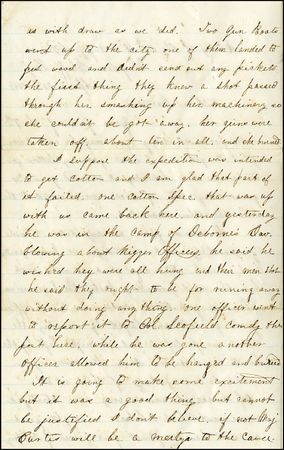 as with draw as we did. Two Gun Boats
went up to the city one of them landed to
get wood and didnt send out any pickets
the first thing they knew a shot passed
through her smashing up her machinery so
she couldnt be got away. her guns were
taken off, about ten in all, and she burned
I suppose the expedition was intended
to get cotton and I am glad that part of
it failed, one cotton Spec. that was up
with us came back here, and yesterday
he was in the Camp of Osbornes Cav.
blowing about Nigger Officers, he said, he
wished they were all hung and their men shot
he said they ought to be for runing away
without doing any thing. one officer went
to report it to Col Scofield Comdg the
post here, while he was gone another
Officer allowed him to be hanged and buried
It is going to make some excitement
but it was a good thing, but cannot
be justified I dont believe, if not Maj
Curtes will be a martyr to the cause.